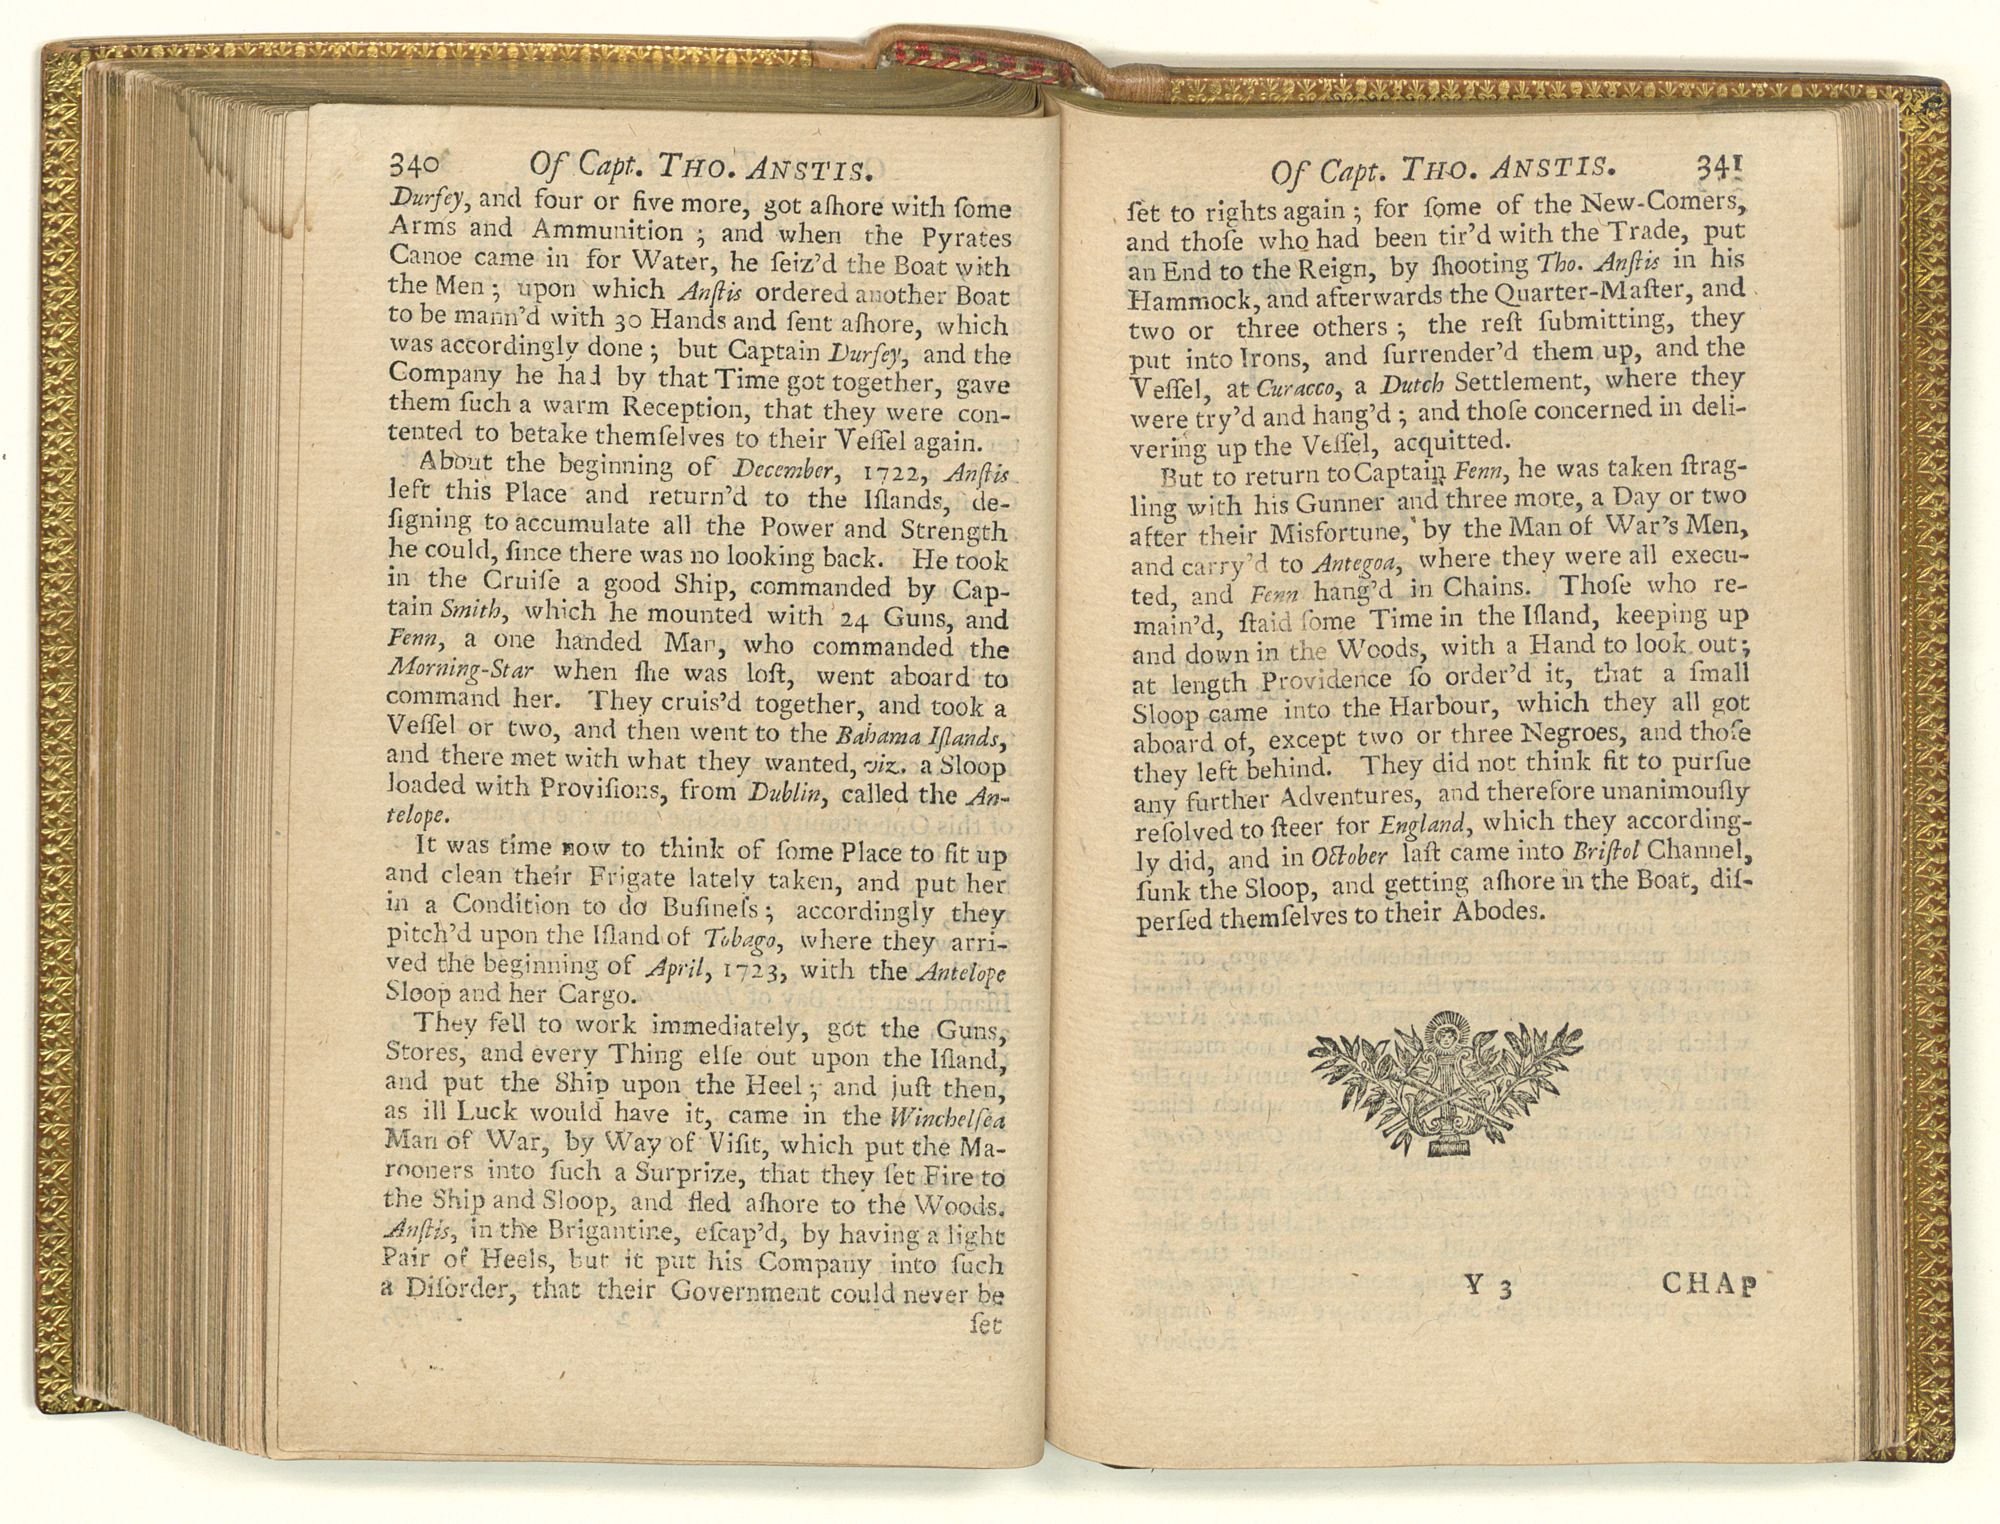 340 Of Capt. THO. ANSTIS.
Durſey, and four or five more, got aſhore with ſome
Arms and Ammunition ; and when the Pyrates
Canoe came in for Water, he ſeiz'd the Boat with
the Men ; upon which Anſtis ordered another Boat
to be mann'd with 30 Hands and ſent aſhore, which
was accordingly done ; but Captain Durſey, and the
Company he had by that Time got together, gave
them ſuch a warm Reception, that they were con-
tented to betake themſelves to their Veſſel again.
About the beginning of December, 1722, Anſtis
left this Place and return'd to the Iſlands, de-
ſigning to accumulate all the Power and Strength
he could, ſince there was no looking back. He took
in the Cruiſe a good Ship, commanded by Cap-
tain Smith, which he mounted with 24 Guns, and
Fenn, a one handed Man, who commanded the
Morning-Star when ſhe was loſt, went aboard to
command her. They cruis'd together, and took a
Veſſel or two, and then went to the Bahama Iſlands,
and there met with what they wanted, viz. a Sloop
loaded with Proviſions, from Dublin, called the An-
telope.
It was time now to think of ſome Place to fit up
and clean their Frigate lately taken, and put her
in a Condition to do Buſineſs ; accordingly they
pitch'd upon the Iſland of Tobago, where they arri-
ved the beginning of April, 1723, with the Antelope
Sloop and her Cargo.
They fell to work immediately, got the Guns,
Stores, and every Thing elſe out upon the Iſland,
and put the Ship upon the Heel ; and juſt then,
as ill Luck would have it, came in the Winchelſea
Man of War, by Way of Viſit, which put the Ma-
rooners into ſuch a Surprize, that they ſet Fire to
the Ship and Sloop, and fled aſhore to the Woods.
Anſtis, in the Brigantine, eſcap'd, by having a light
Pair of Heels, but it put his Company into ſuch
a Diſorder, that their Government could never be
ſet
Of Capt. THO. ANSTIS. 341
ſet to rights again ; for ſome of the New-Comers,
and thoſe who had been tir'd with the Trade, put
an End to the Reign, by ſhooting Tho. Anſtis in his
Hammock, and afterwards the Quarter-Maſter, and
two or three others ; the reſt ſubmitting, they
put into Irons, and ſurrender'd them up, and the
Veſſel, at Curacco, a Dutch Settlement, where they
were try'd and hang'd ; and thoſe concerned in deli-
vering up the Veſſel, acquitted.
But to return to Captain Fenn, he was taken ſtrag-
ling with his Gunner and three more, a Day or two
after their Misfortune, by the Man of War's Men,
and carry'd to Antegoa, where they were all execu-
ted, and Fenn hang'd in Chains. Thoſe who re-
main'd, ſtaid ſome Time in the Iſland, keeping up
and down in the Woods, with a Hand to look out ;
at length Providence ſo order'd it, that a ſmall
Sloop came into the Harbour, which they all got
aboard of, except two or three Negroes, and thoſe
they left behind. They did not think fit to purſue
any further Adventures, and therefore unanimouſly
reſolved to ſteer for England, which they according-
ly did, and in October laſt came into Briſtol Channel,
ſunk the Sloop, and getting aſhore in the Boat, diſ-
perſed themſelves to their Abodes.
Y 3 CHAP